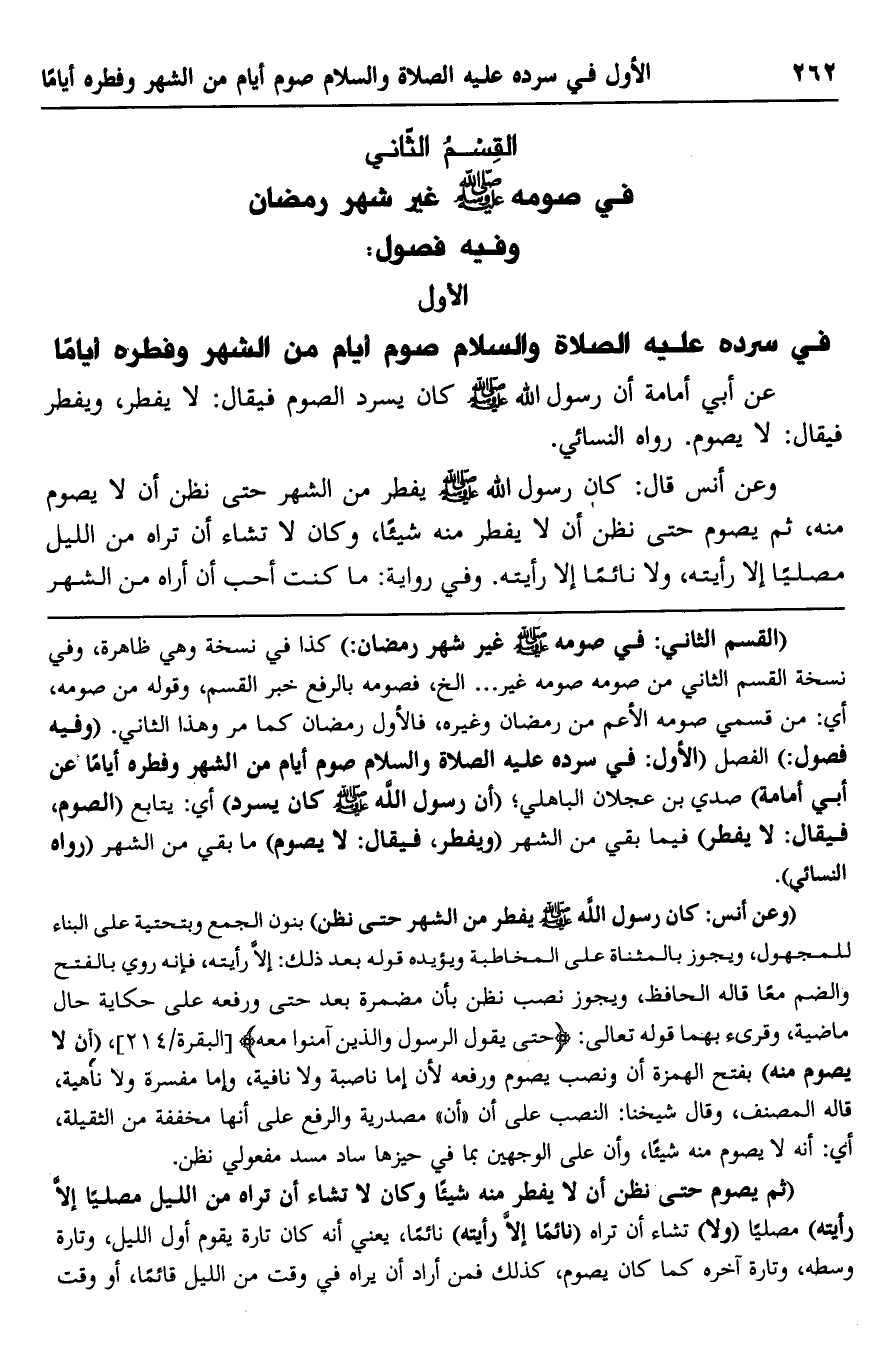 ٢٦٢ الأول في سرده عليه الصلاة والسلام صوم أيام من الشهر وفطره أيامًا
القِسْمُ الثَّاني
في صومه ﷺ غير شهر رمضان
وفيه فصول:
الأول
في سرده عليه الصلاة والسلام صوم أيام من الشهر وفطره أيامًا
عن أبي أمامة أن رسول الله ﷺ كان يسرد الصوم فيقال: لا يفطر، ويفطر
فيقال: لا يصوم. رواه النسائي.
وعن أنس قال: كان رسول الله ﷺ يفطر من الشهر حتى نظن أن لا يصوم
منه، ثم يصوم حتى نظن أن لا يفطر منه شيئًا، وكان لا تشاء أن تراه من الليل
مصليًا إلا رأيته، ولا نائمًا إلا رأيته. وفي رواية: ما كنت أحب أن أراه من الشهر
(القسم الثاني: في صومه ﷺ غير شهر رمضان:) كذا في نسخة وهي ظاهرة، وفي
نسخة القسم الثاني من صومه صومه غير... الخ، فصومه بالرفع خبر القسم، وقوله من صومه،
أي: من قسمي صومه الأعم من رمضان وغيره، فالأول رمضان كما مر وهذا الثاني. (وفيه
فصول:) الفصل (الأول: في سرده عليه الصلاة والسلام صوم أيام من الشهر وفطره أيامًا عن
أبي أمامة) صدي بن عجلان الباهلي؛ (أن رسول اللَّه ﷺ كان يسرد) أي: يتابع (الصوم،
فيقال: لا يفطر) فيما بقي من الشهر (ويفطر، فيقال: لا يصوم) ما بقي من الشهر (رواه
النسائي).
(وعن أنس: كان رسول اللَّه ﷺ يفطر من الشهر حتى نظن) بنون الجمع وبتحتية على البناء
للمجهول، ويجوز بالمثناة على المخاطبة ويؤيده قوله بعد ذلك: إلاَّ رأيته، فإنه روي بالفتح
والضم معًا قاله الحافظ، ويجوز نصب نظن بأن مضمرة بعد حتى ورفعه على حكاية حال
ماضية، وقرىء بهما قوله تعالى: ﴿حتى يقول الرسول والذين آمنوا معه﴾ [البقرة/٢١٤]، (أن لا
يصوم منه) بفتح الهمزة أن ونصب يصوم ورفعه لأن إما ناصبة ولا نافية، وإما مفسرة ولا ناهية،
قاله المصنف، وقال شيخنا: النصب على أن «أن» مصدرية والرفع على أنها مخففة من الثقيلة،
أي: أنه لا يصوم منه شيئًا، وأن على الوجهين بما في حيزها ساد مسد مفعولي نظن.
(ثم يصوم حتى نظن أن لا يفطر منه شيئًا وكان لا تشاء أن تراه من الليل مصليًا إلاَّ
رأيته) مصليًا (ولا) تشاء أن تراه (نائمًا إلاَّ رأيته) نائمًا، يعني أنه كان تارة يقوم أول الليل، وتارة
وسطه، وتارة آخره كما كان يصوم، كذلك فمن أراد أن يراه في وقت من الليل قائمًا، أو وقت